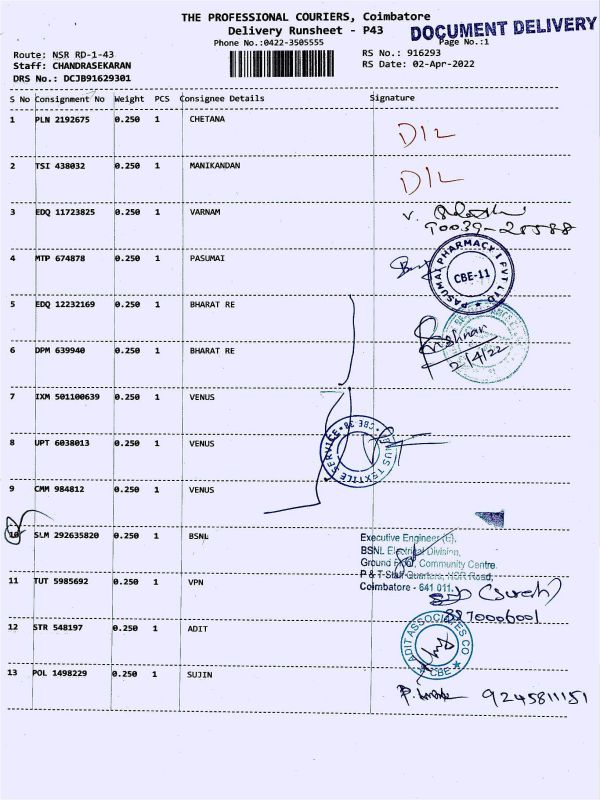 THE PROFESSIONAL COURIERS, Coimbatore
Delivery Runsheet - P43
DOCUMENT DELIVERY
Phone No.:0422-3505555
Page No.:1
Route: NSR RD-1-43
RS No.: 916293
Staff: CHANDRASEKARAN
RS Date: 02-Apr-2022
DRS No.: DCJB91629301
S No Consignment No Weight PCS Consignee Details Signature
1 PLN 2192675 0.250 1 CHETANA D/L
2 TSI 438032 0.250 1 MANIKANDAN D/L
3 EDQ 11723825 0.250 1 VARNAM V.
4 MTP 674878 0.250 1 PASUMAI
PASUMAI PHARMACY I PVT LTD
CBE-11
5 EDQ 12232169 0.250 1 BHARAT RE
6 DPM 639940 0.250 1 BHARAT RE
2/4/22
7 IXM 501100639 0.250 1 VENUS
8 UPT 6038013 0.250 1 VENUS
VENUS TEXTILE SERVICE
CBE 38
9 CMM 984812 0.250 1 VENUS
10 SLM 292635820 0.250 1 BSNL
Executive Engineer (E),
BSNL Electrical Division,
Ground Floor, Community Centre.
P & T Staff Quarters, NSR Road,
Coimbatore - 641 011.
11 TUT 5985692 0.250 1 VPN (Suresh)
8870006001
12 STR 548197 0.250 1 ADIT
ADIT ASSOCIATES CO
CBE
13 POL 1498229 0.250 1 SUJIN
9245811151